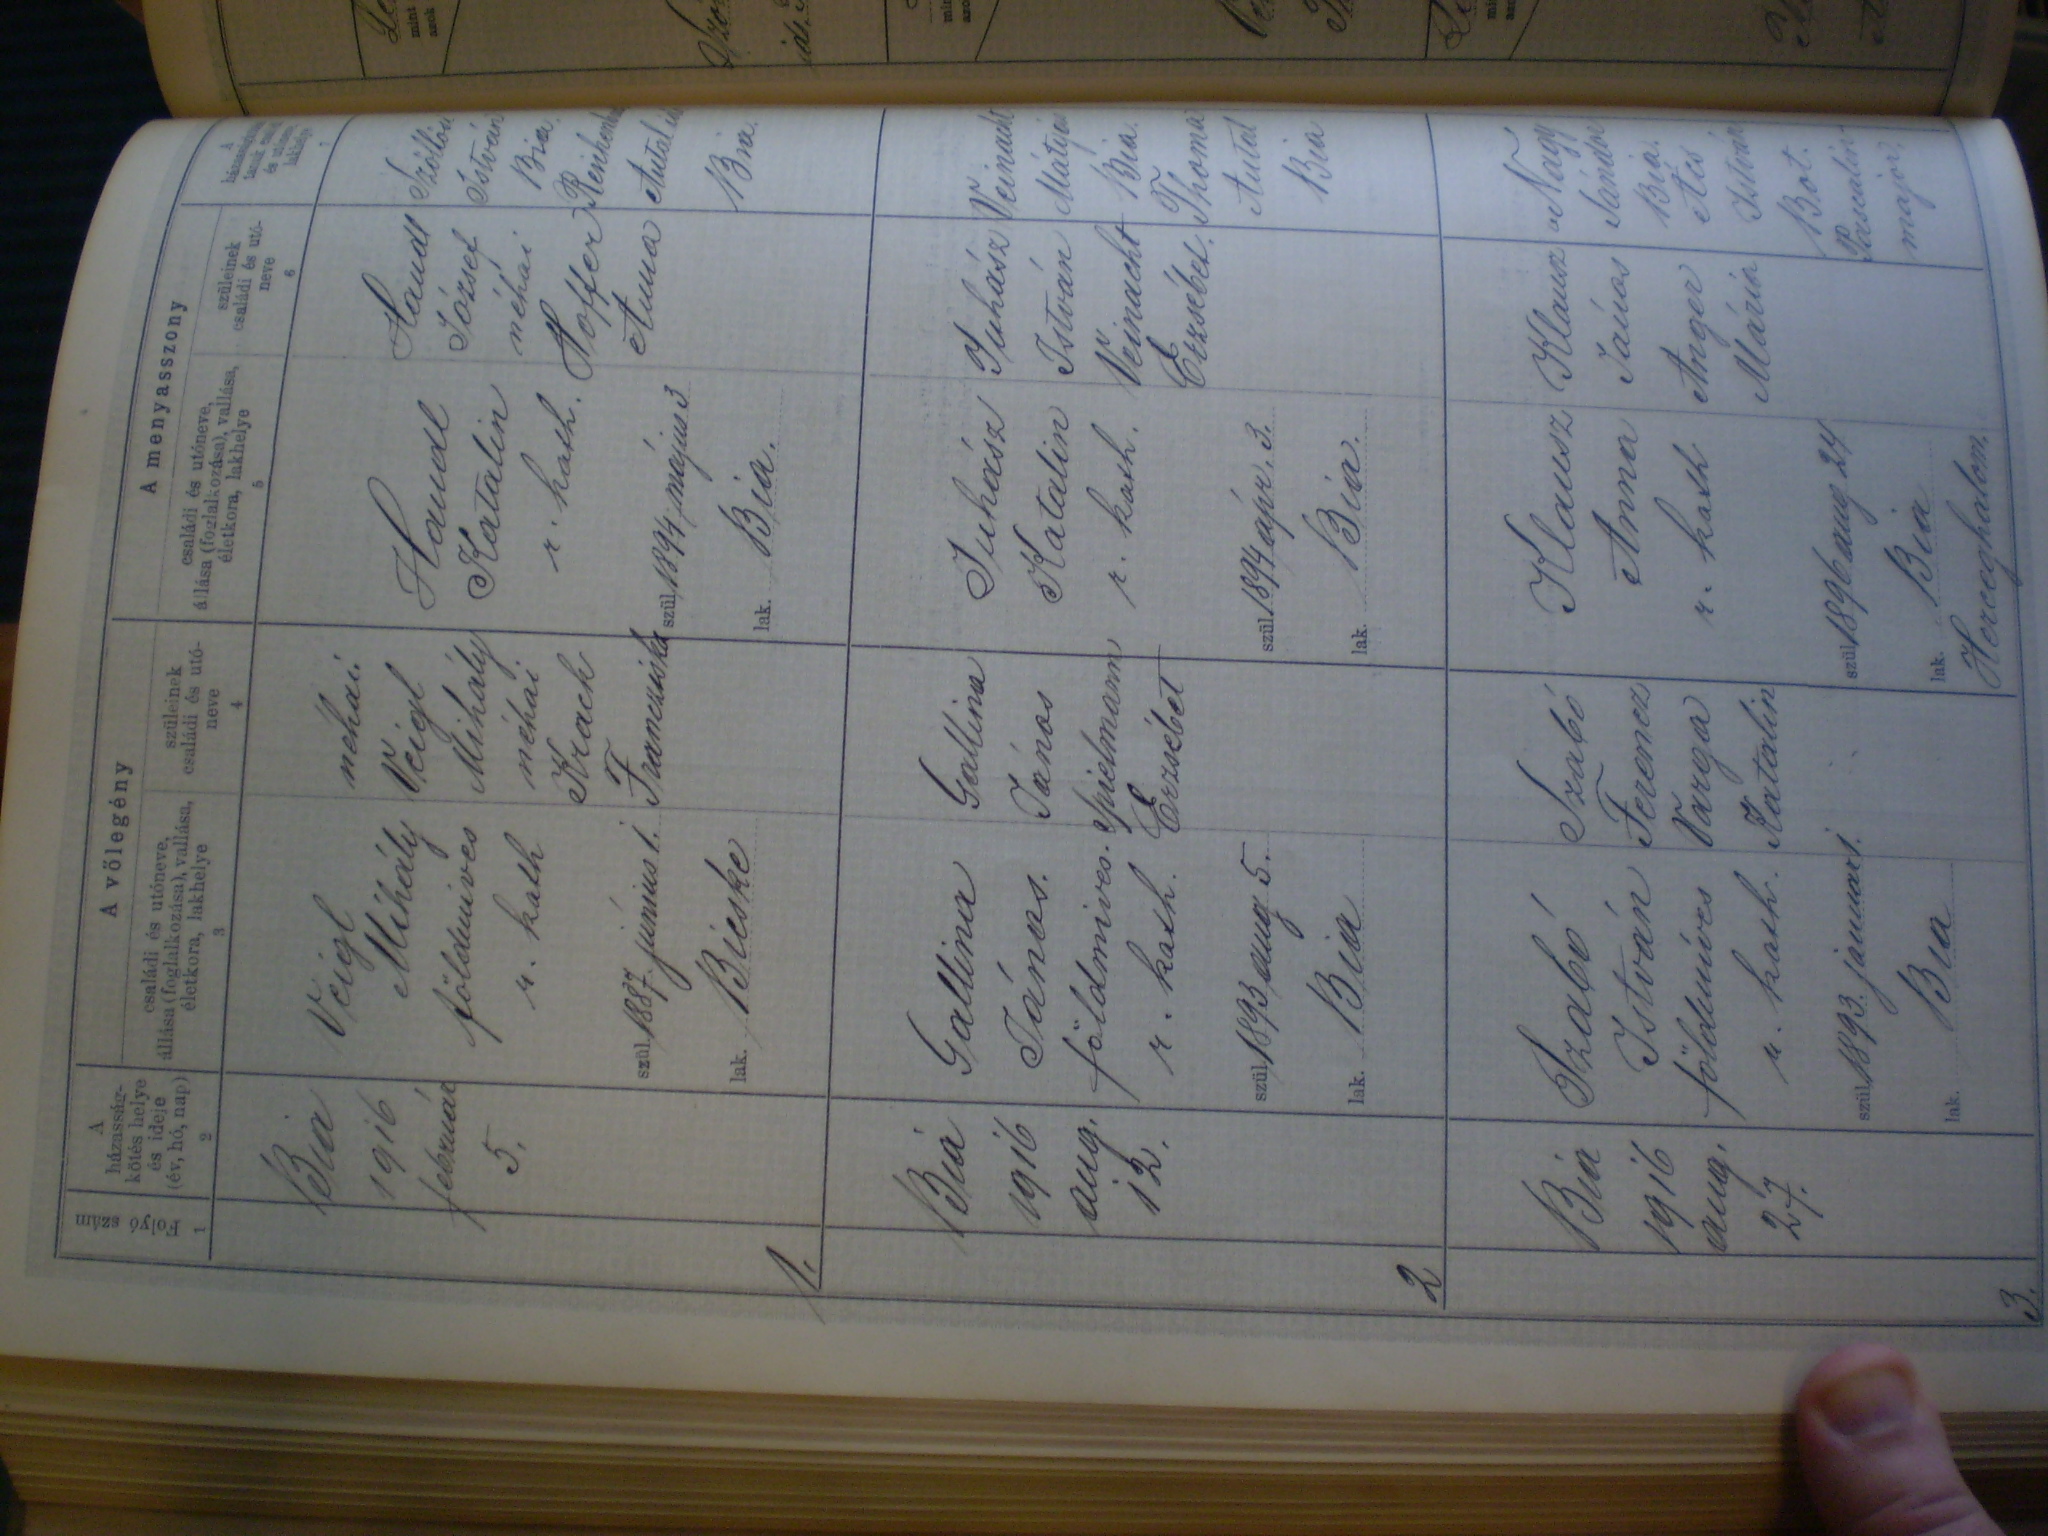 A vőlegény
A menyasszony
Folyó
szám
1
A
házasság-
kötés helye
és ideje
(év, hó, nap)
2
családi és utóneve,
állása (foglalkozása), vallása,
életkora, lakhelye
3
szüleinek
családi és utó-
neve
4
családi és utóneve,
állása (foglalkozása), vallása,
életkora, lakhelye
5
szüleinek
családi és utó-
neve
6
A
7
1.
Bia
1916
február
5.
Veigl
Mihály
földmíves
r. kath
szül. 1887. június 1.
lak. Bicske
néhai
Veigl
Mihály
néhai
Krach
Franciska
Haudl
Katalin
r. kath.
szül. 1894. május 3
lak. Bia.
Haudl
József
néhai
Hoffer
Anna
István
Bia.
Bia.
2
Bia
1916
aug.
12.
Gallina
János.
földmives.
r. kath.
szül. 1893 aug 5.
lak. Bia
Gallina
János
Spielmann
Erzsébet
Juhász
Katalin
r. kath.
szül. 1894 ápr. 3.
lak. Bia.
Juhász
István
Veinacht
Erzsébet.
Veinacht
Mátyás
Bia.
Thoma
Antal
Bia
3.
Bia
1916
aug.
27.
Szabó
István
földmíves
r. kath.
szül. 1893. január 1.
lak. Bia
Szabó
Ferencz
Varga
Katalin
Klausz
Anna
r. kath
szül. 1896 aug 24
lak. Bia
Herceghalom.
Klausz
János
Anger
Mária
Nagy
Sándor
Bia.
Ács
István
Bot.
major.
mint
azok